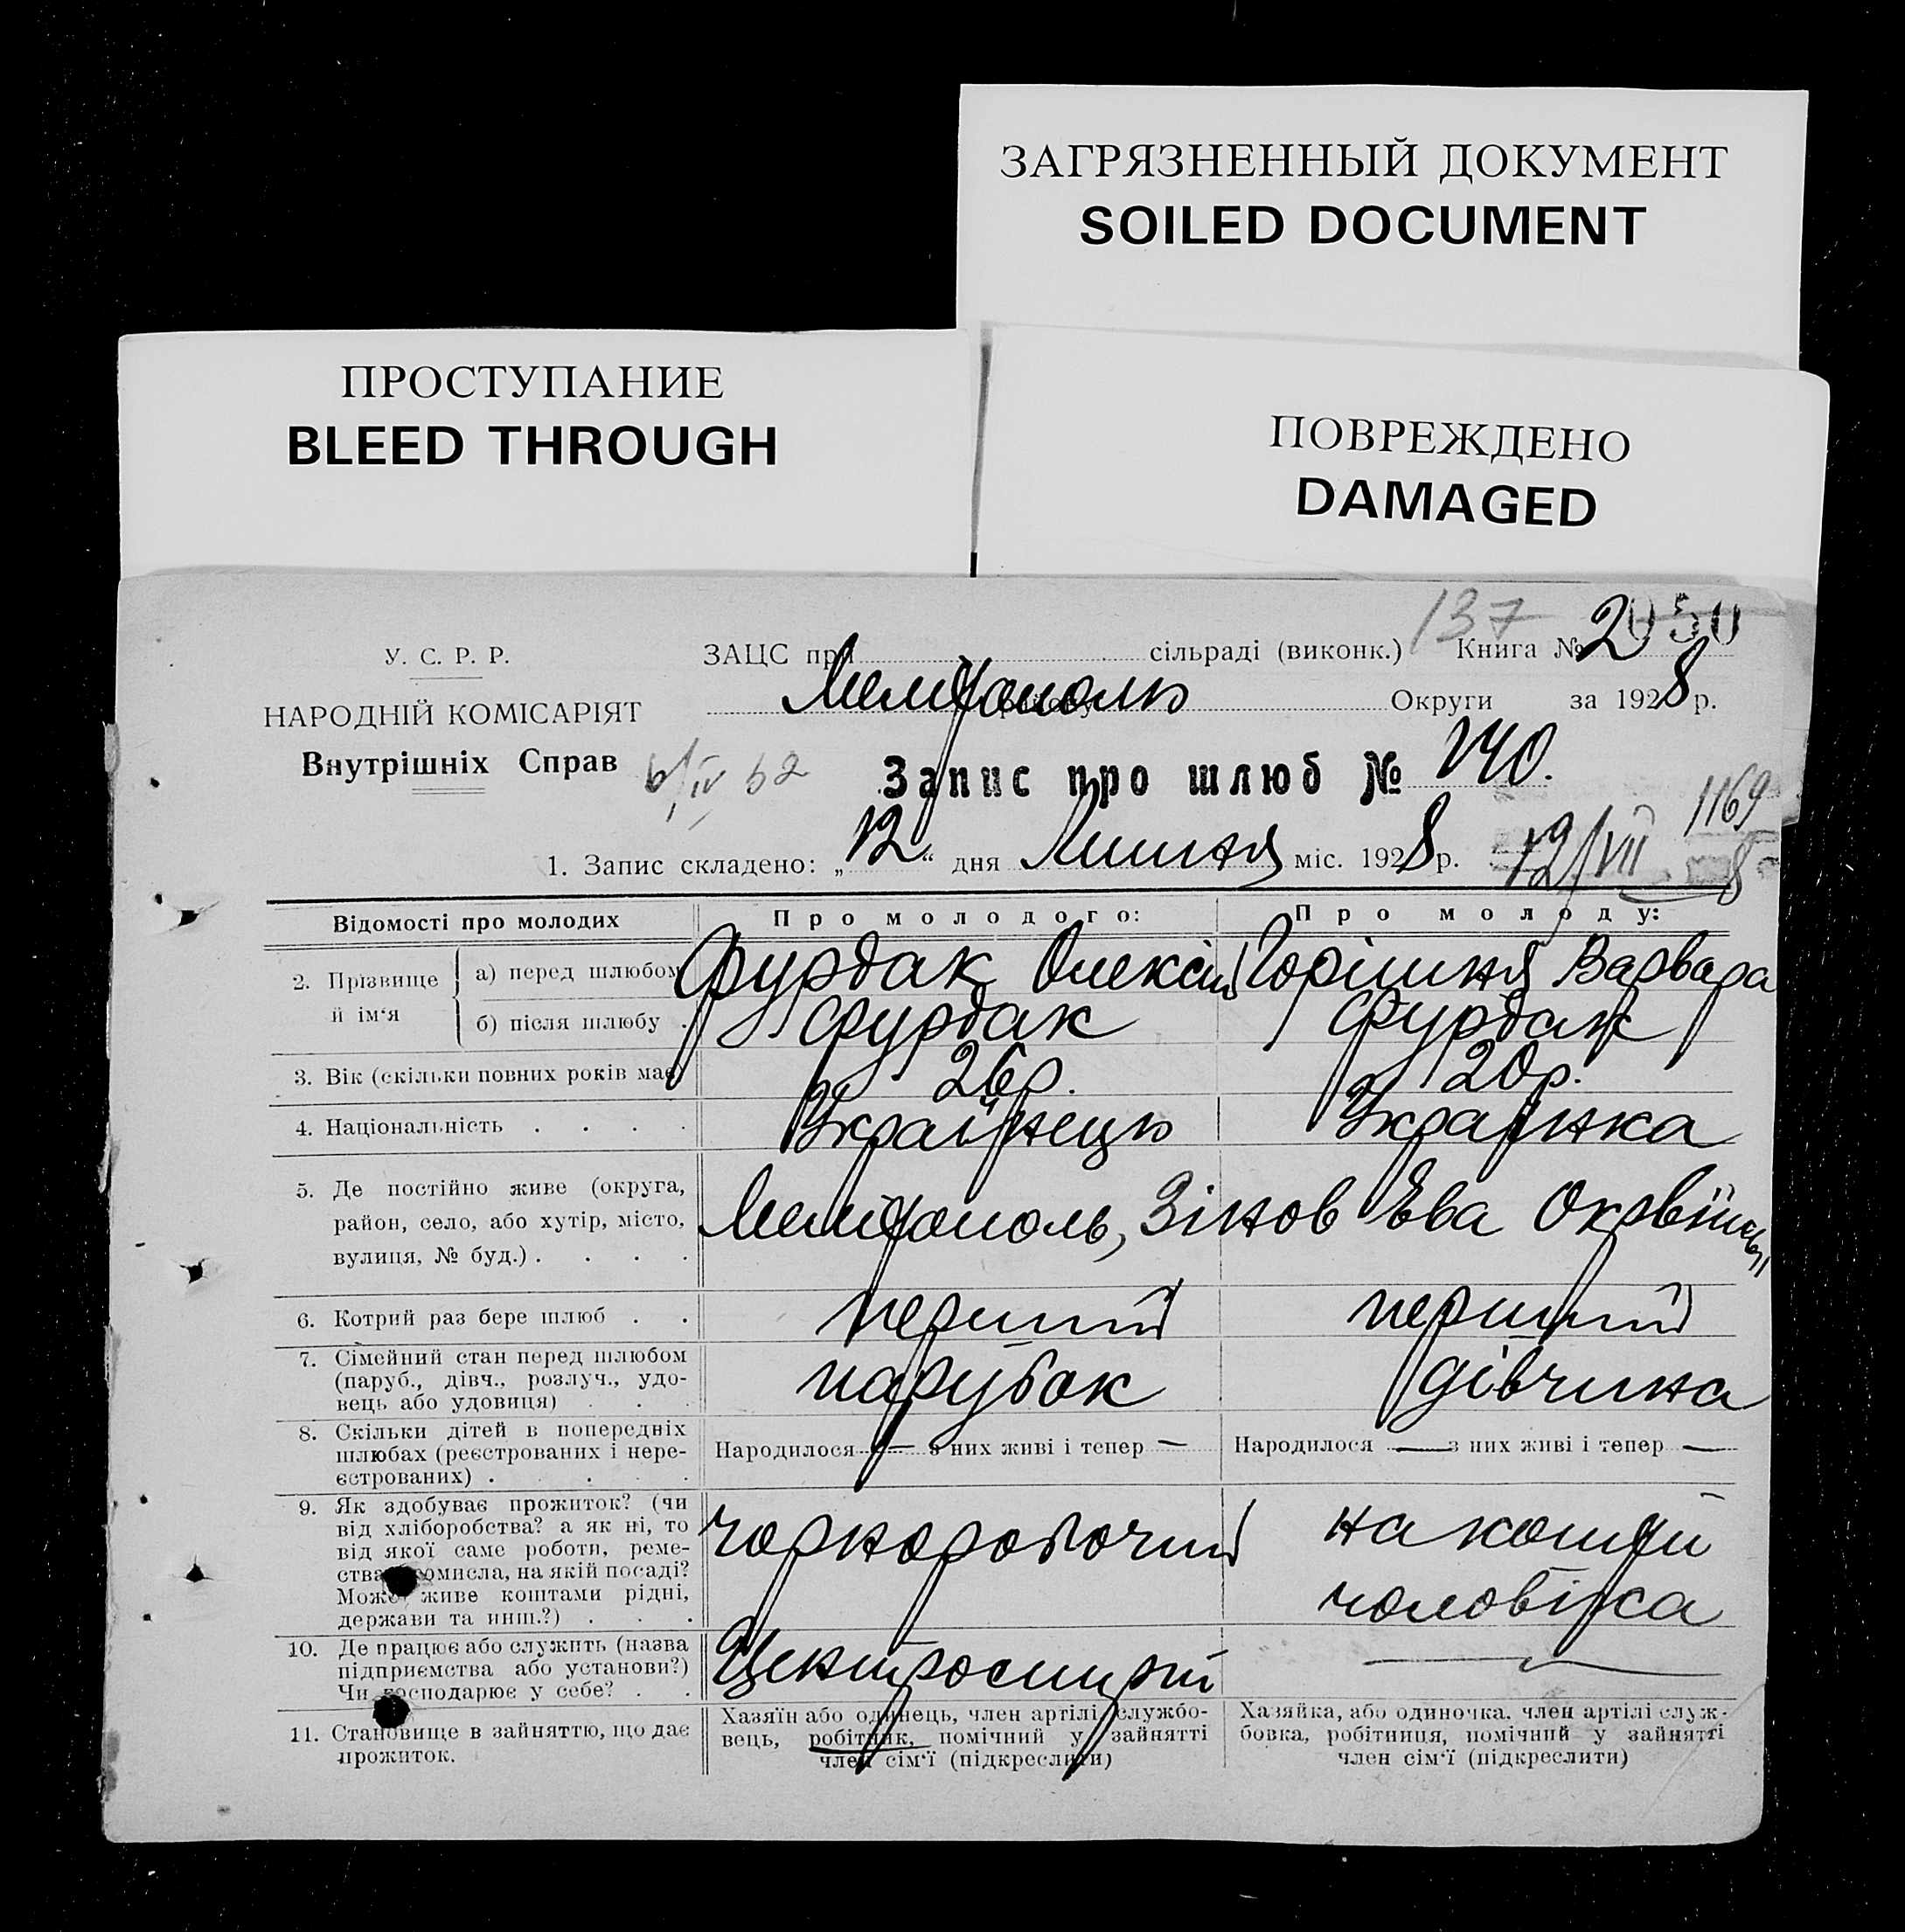 ЗАГРЯЗНЕННЫЙ ДОКУМЕНТ
SOILED DOCUMENT
ПРОСТУПАНИЕ
BLEED THROUGH
ПОВРЕЖДЕНО
DAMAGED
137
У. С. Р. Р.
ЗАЦС при сільраді (виконк.) Книга № 2
НАРОДНІЙ КОМІСАРІЯТ
Мелітополь Округи за 1928 р.
Внутрішніх Справ
Запис про шлюб № 140.
1169
1. Запис складено: „12“ дня Липня міс. 1928 р. 12/VII 8
Відомості про молодих
Про молодого:
Про молоду:
2. Прізвище й ім‘я
а) перед шлюбом
Фурдак Олексій
Горішня Варвара
б) після шлюбу .
Фурдак
Фурдак
3. Вік (скільки повних років має)
26 р.
20 р.
4. Національність . . . .
Українець
Українка
5. Де постійно живе (округа,
район, село, або хутір, місто,
вулиця, № буд.) . . . .
Мелітополь, Зінов
6. Котрий раз бере шлюб . .
перший
перший
7. Сімейний стан перед шлюбом
(паруб., дівч., розлуч., удо-
вець або удовиця) . . .
парубок
дівчина
8. Скільки дітей в попередніх
шлюбах (реєстрованих і нере-
єстрованих) . . . .
Народилося — з них живі і тепер —
Народилося — з них живі і тепер —
9. Як здобуває прожиток? (чи
від хліборобства? а як ні, то
від якої саме роботи, реме-
ства, промисла, на якій посаді?
Може живе коштами рідні,
держави та инш.?) . . .
чорноробочий
на кошти
чоловіка
10. Де працює або служить (назва
підприємства або установи?)
Чи господарює у себе? . .
Центроспирт
—
11. Становище в зайняттю, що дає
прожиток.
Хазяїн або одинець, член артілі, службо-
вець, робітник, помічний у зайнятті
член сім‘ї (підкреслити)
Хазяйка, або одиночка, член артілі служ-
бовка, робітниця, помічний у зайнятті
член сім‘ї (підкреслити)